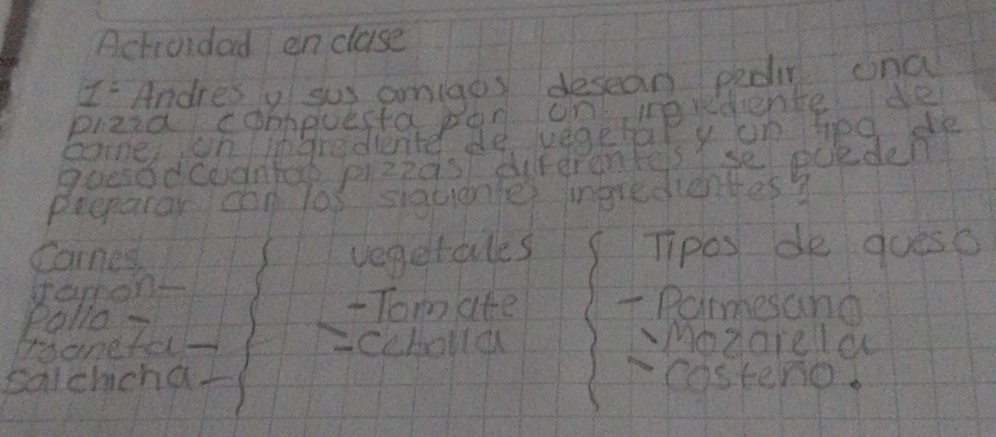 Actividad en clase
1= Andres y sus amigos desean pedir una
pizza compuesta por un ingrediente de
carne, un ingrediente de vegetal y un tipo de
queso ¿cuantas pizzas diferentes se pueden
preparar con los siguientes ingredientes?
Carnes { vegetales { Tipos de queso
Jamon-
- Tomate - Parmesano
Pollo -
= Cebolla - Mozarella
salchicha - - costeño.